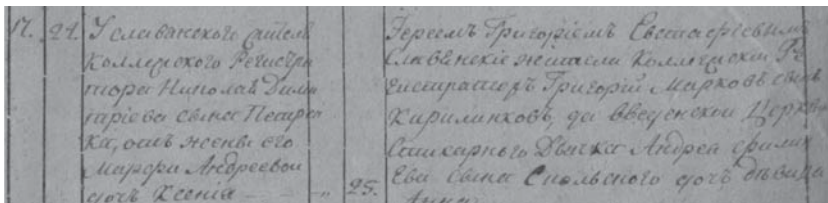 17. 24. У славянского жителя
Коллежского Регистра
тора Николая Дими
тріева сына Петрен
ка, отъ жены его
Марфы Андреевой
дочь Ксенія
Іереемъ Григоріемъ Евстафіевымъ
Славенскіе жители Коллежскій Ре
гистраторъ Григорій Марковъ сынъ
Кирилинковъ, да Введенской Церкви
Стихарного Дьячка Андрея
сына дочь дѣвица
25.
Анна